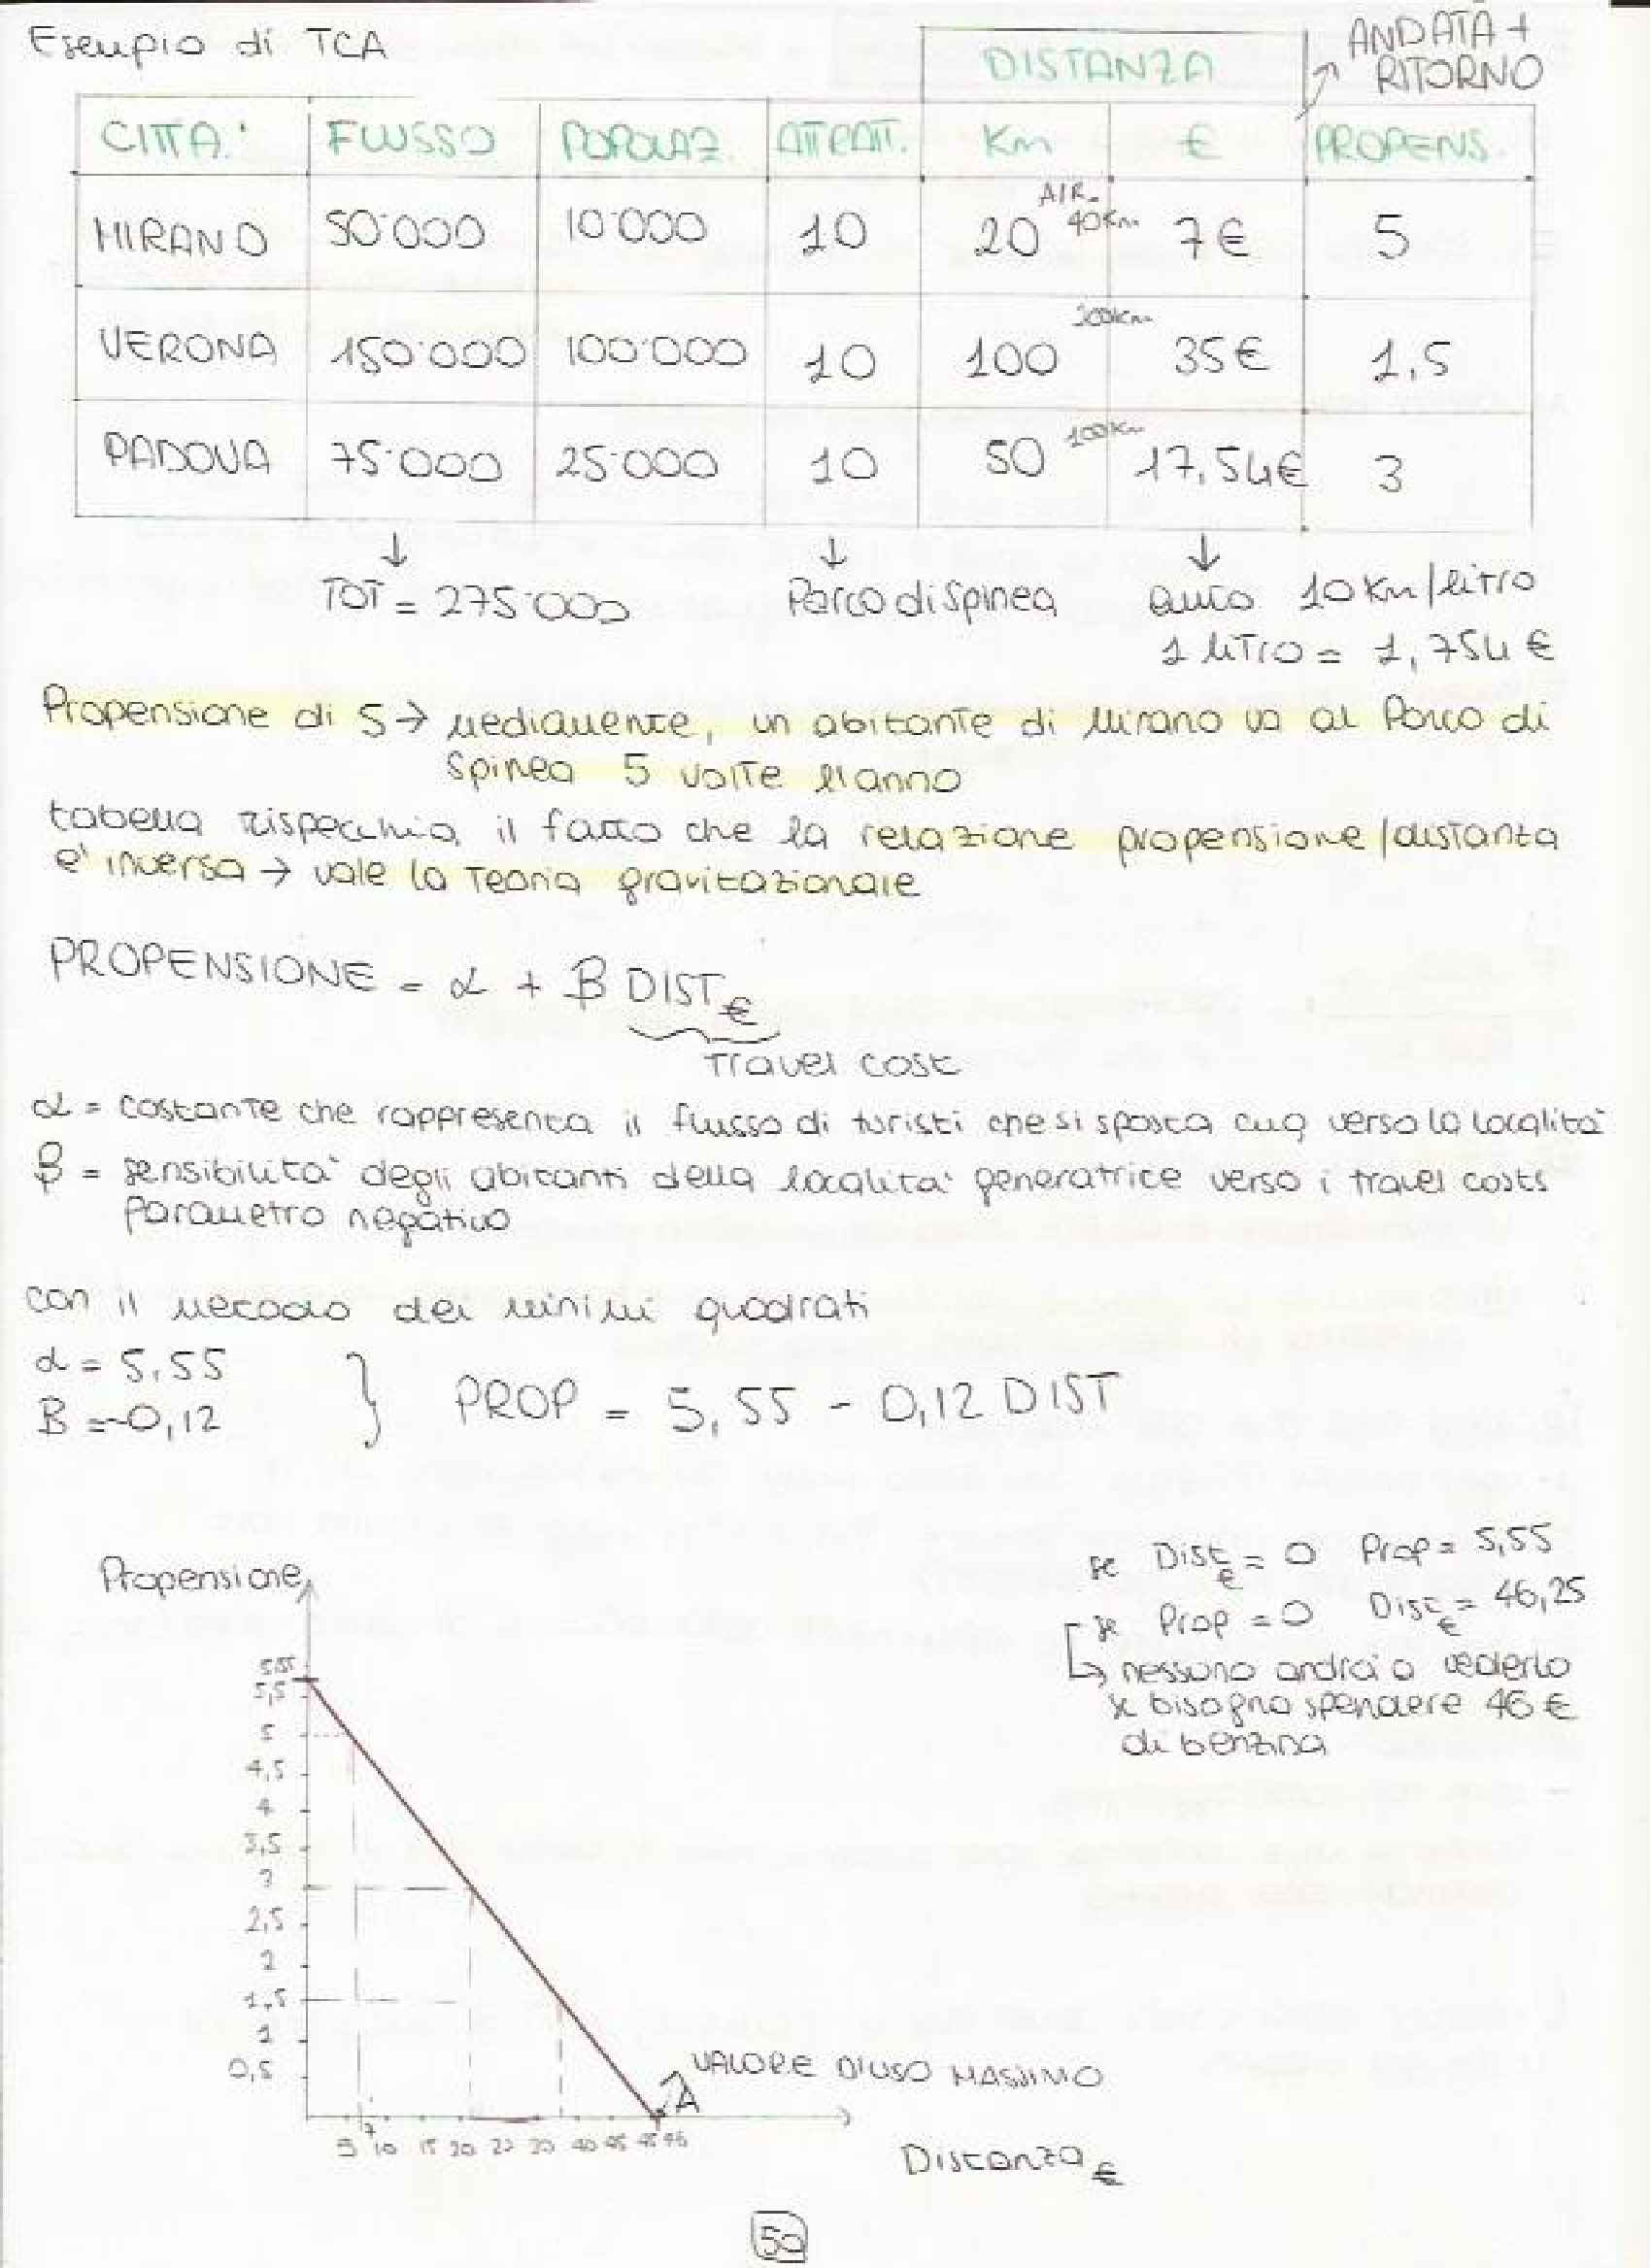 Esempio di TCA
DISTANZA
ANDATA +
RITORNO
CITTA' FLUSSO POPOLAZ. ATTRATT. Km € PROPENS.
MIRANO 50'000 10'000 10 20 A/R. 40Km 7€ 5
VERONA 150'000 100'000 10 100 200Km 35€ 1,5
PADOVA 75'000 25'000 10 50 100Km 17,54€ 3
↓ ↓ ↓
TOT = 275'000 Parco di Spinea auto 10 Km/litro
1 litro = 1,754 €
Propensione di 5 → mediamente, un abitante di Mirano va al Parco di
Spinea 5 volte l'anno
tabella rispecchia il fatto che la relazione propensione/distanza
e' inversa → vale la teoria gravitazionale
PROPENSIONE = α + β DIST€
Travel cost
α = costante che rappresenta il flusso di turisti che si sposta cmq verso la località
β = sensibilità degli abitanti della località generatrice verso i travel costs
Parametro negativo
con il metodo dei minimi quadrati
α = 5,55
β = -0,12
} PROP = 5,55 - 0,12 DIST
se Dist€ = 0 Prop = 5,55
se Prop = 0 Dist€ = 46,25
↳ nessuno andrà a vederlo
se bisogna spendere 46 €
di benzina
Propensione
5,55
5,5
5
4,5
4
3,5
3
2,5
2
1,5
1
0,5
VALORE D'USO MASSIMO
A
5 7 10 15 20 22 30 40 45 45 46
Distanza €
50